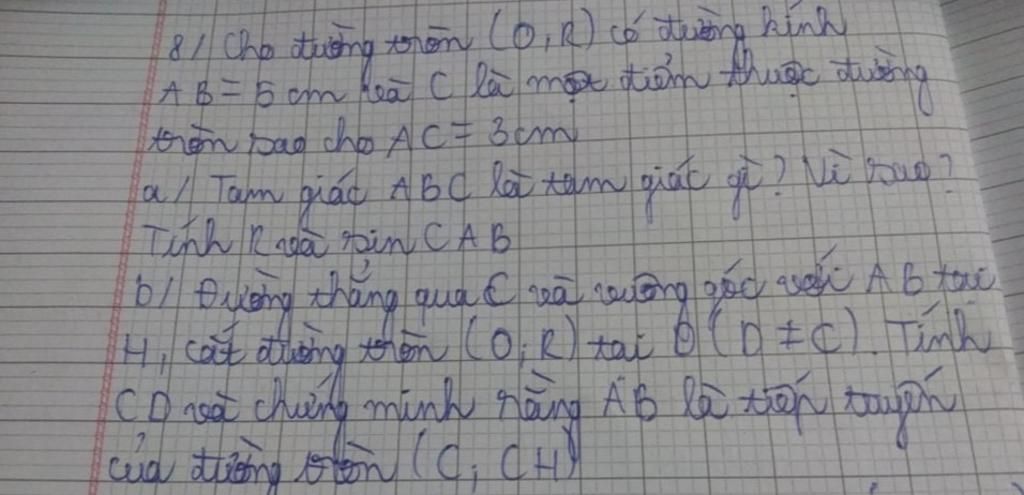 8/ Cho đường tròn (O,R) có đường kính
AB = 5 cm và C là một điểm thuộc đường
tròn sao cho AC = 3cm
a/ Tam giác ABC là tam giác gì? Vì sao?
Tính R và sin CAB
b/ Đường thẳng qua C và vuông góc với AB tại
H, cắt đường tròn (O;R) tại D (D ≠ C). Tính
CD và chứng minh rằng AB là tiếp tuyến
của đường tròn (C; CH)